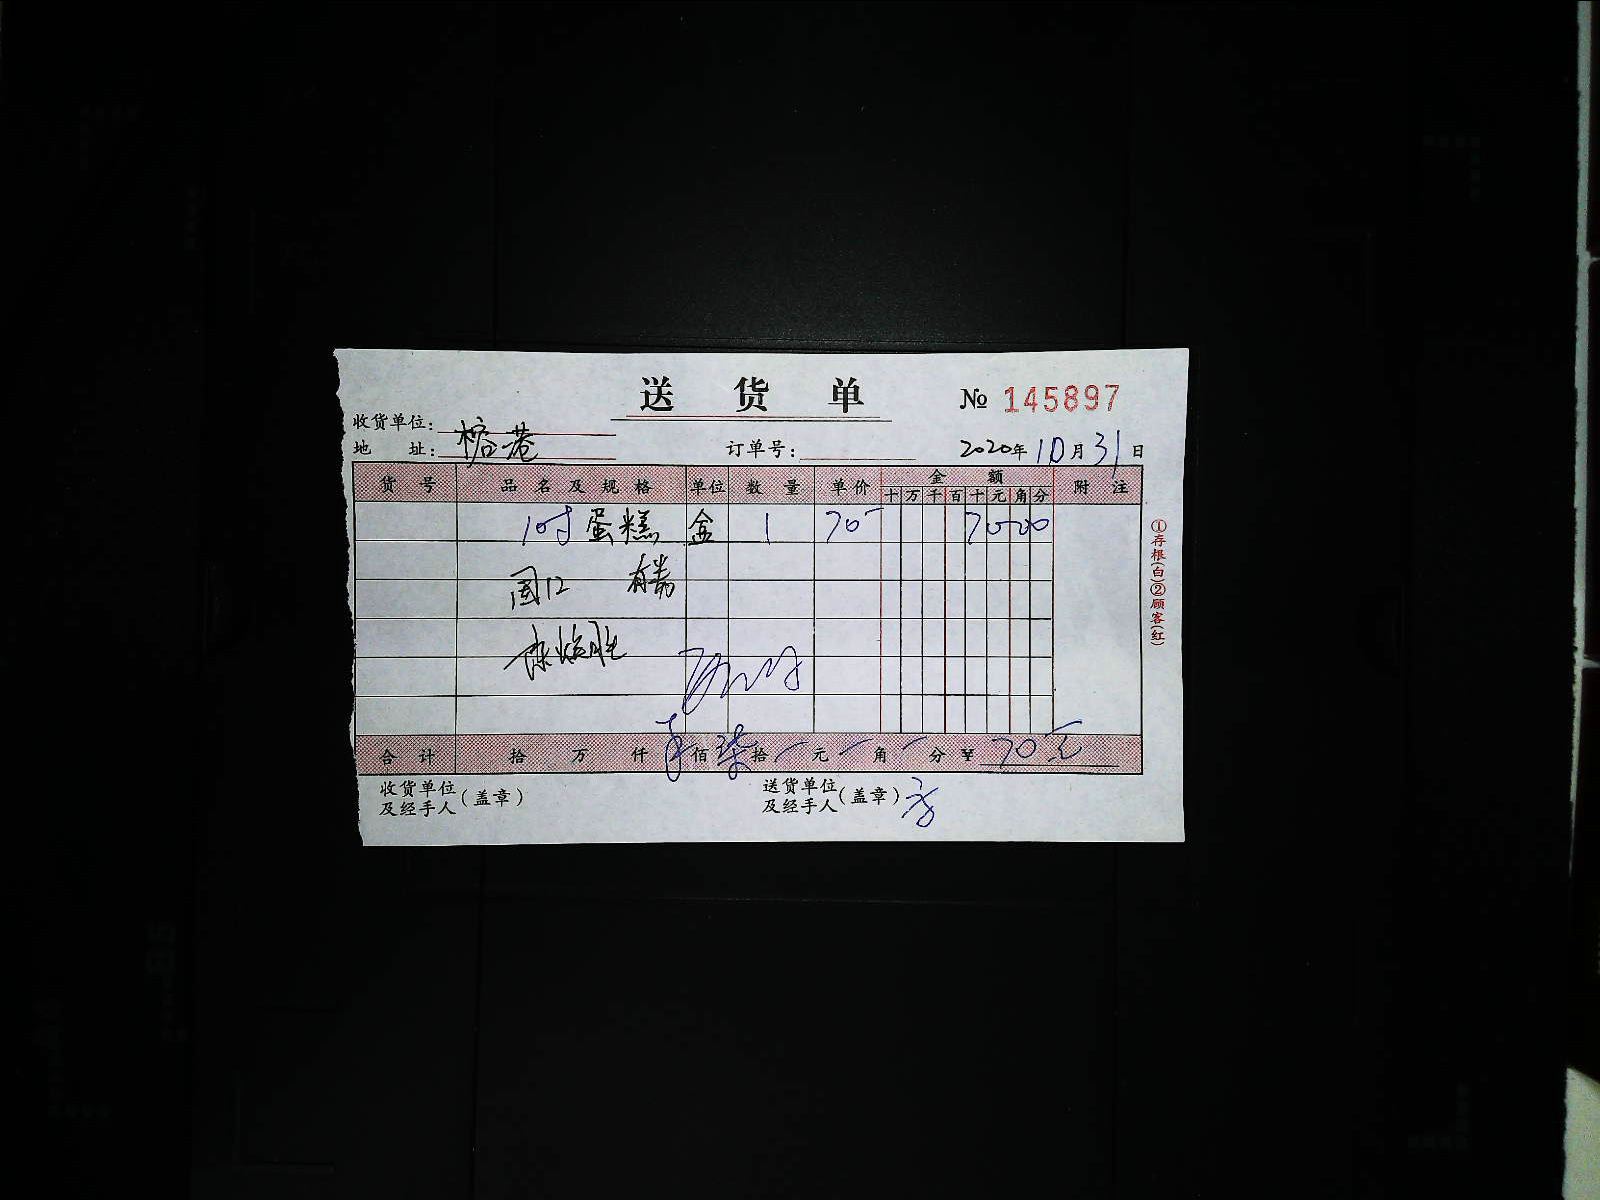 送货单 № 145897
收货单位:
地址: 榕港 订单号: 2020年10月31日
货号 品名及规格 单位 数量 单价 金额 附注
十 万 千 百 十 元 角 分
10寸蛋糕 盒 1 70- 70-00
合计 拾 万 仟 佰 柒拾 元 角 分 ¥ 70元
收货单位及经手人(盖章) 送货单位及经手人(盖章)
①存根(白)②顾客(红)